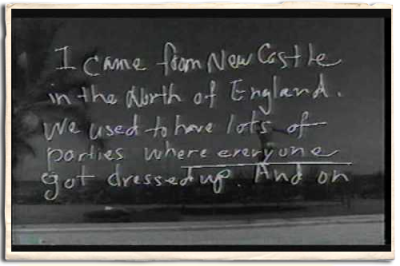 I came from New Castle
in the North of England.
We used to have lots of
parties where everyone
got dressed up. And on